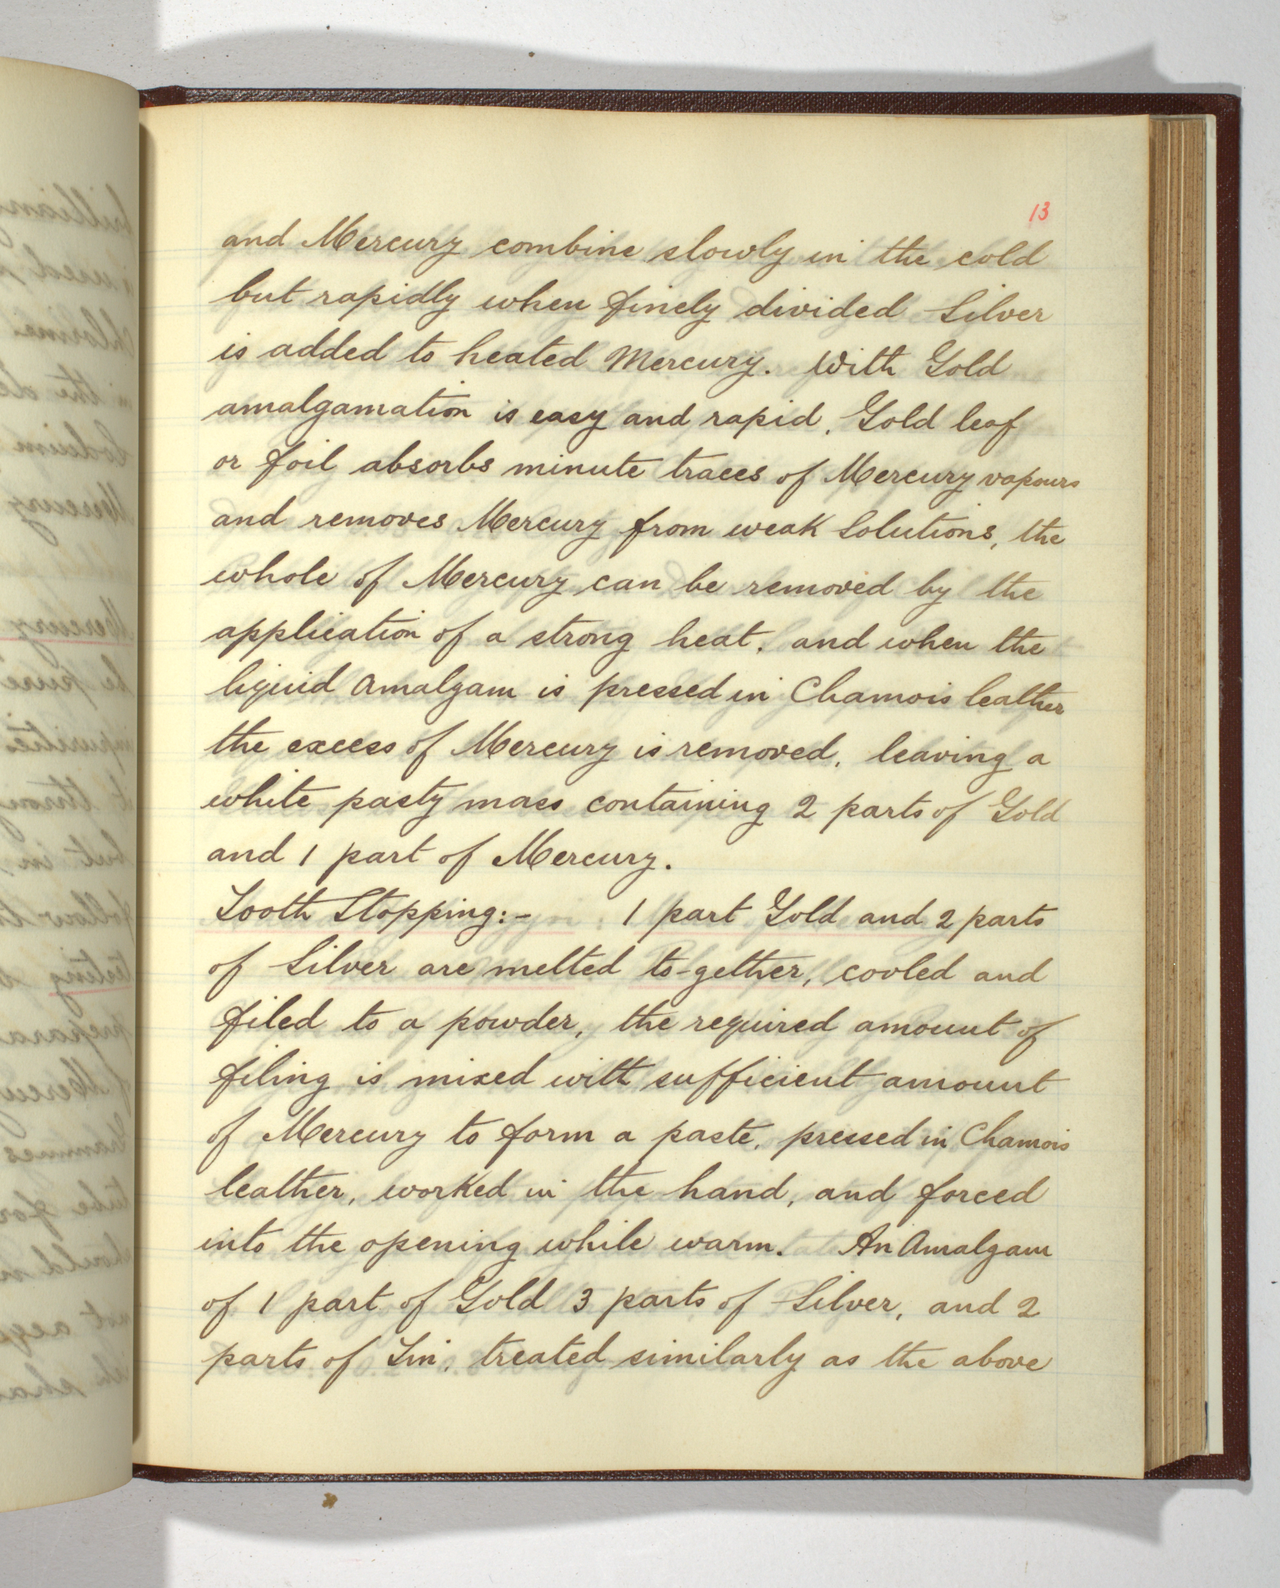 13
and Mercury combine slowly in the cold
but rapidly when finely divided Silver
is added to heated Mercury. With Gold
amalgamation is easy and rapid. Gold leaf
or foil absorbs minute traces of Mercury vapours
and removes Mercury from weak Solutions, the
whole of Mercury can be removed by the
application of a strong heat. and when the
liquid Amalgam is pressed in Chamois leather
the excess of Mercury is removed, leaving a
white pasty mass containing 2 parts of Gold
and 1 part of Mercury.
Tooth Stopping:- 1 part Gold and 2 parts
of Silver are melted to-gether, cooled and
filed to a powder, the required amount of
filing is mixed with sufficient amount
of Mercury to form a paste, pressed in Chamois
leather, worked in the hand, and forced
into the opening while warm. An Amalgam
of 1 part of Gold 3 parts of Silver, and 2
parts of Tin, treated similarly as the above